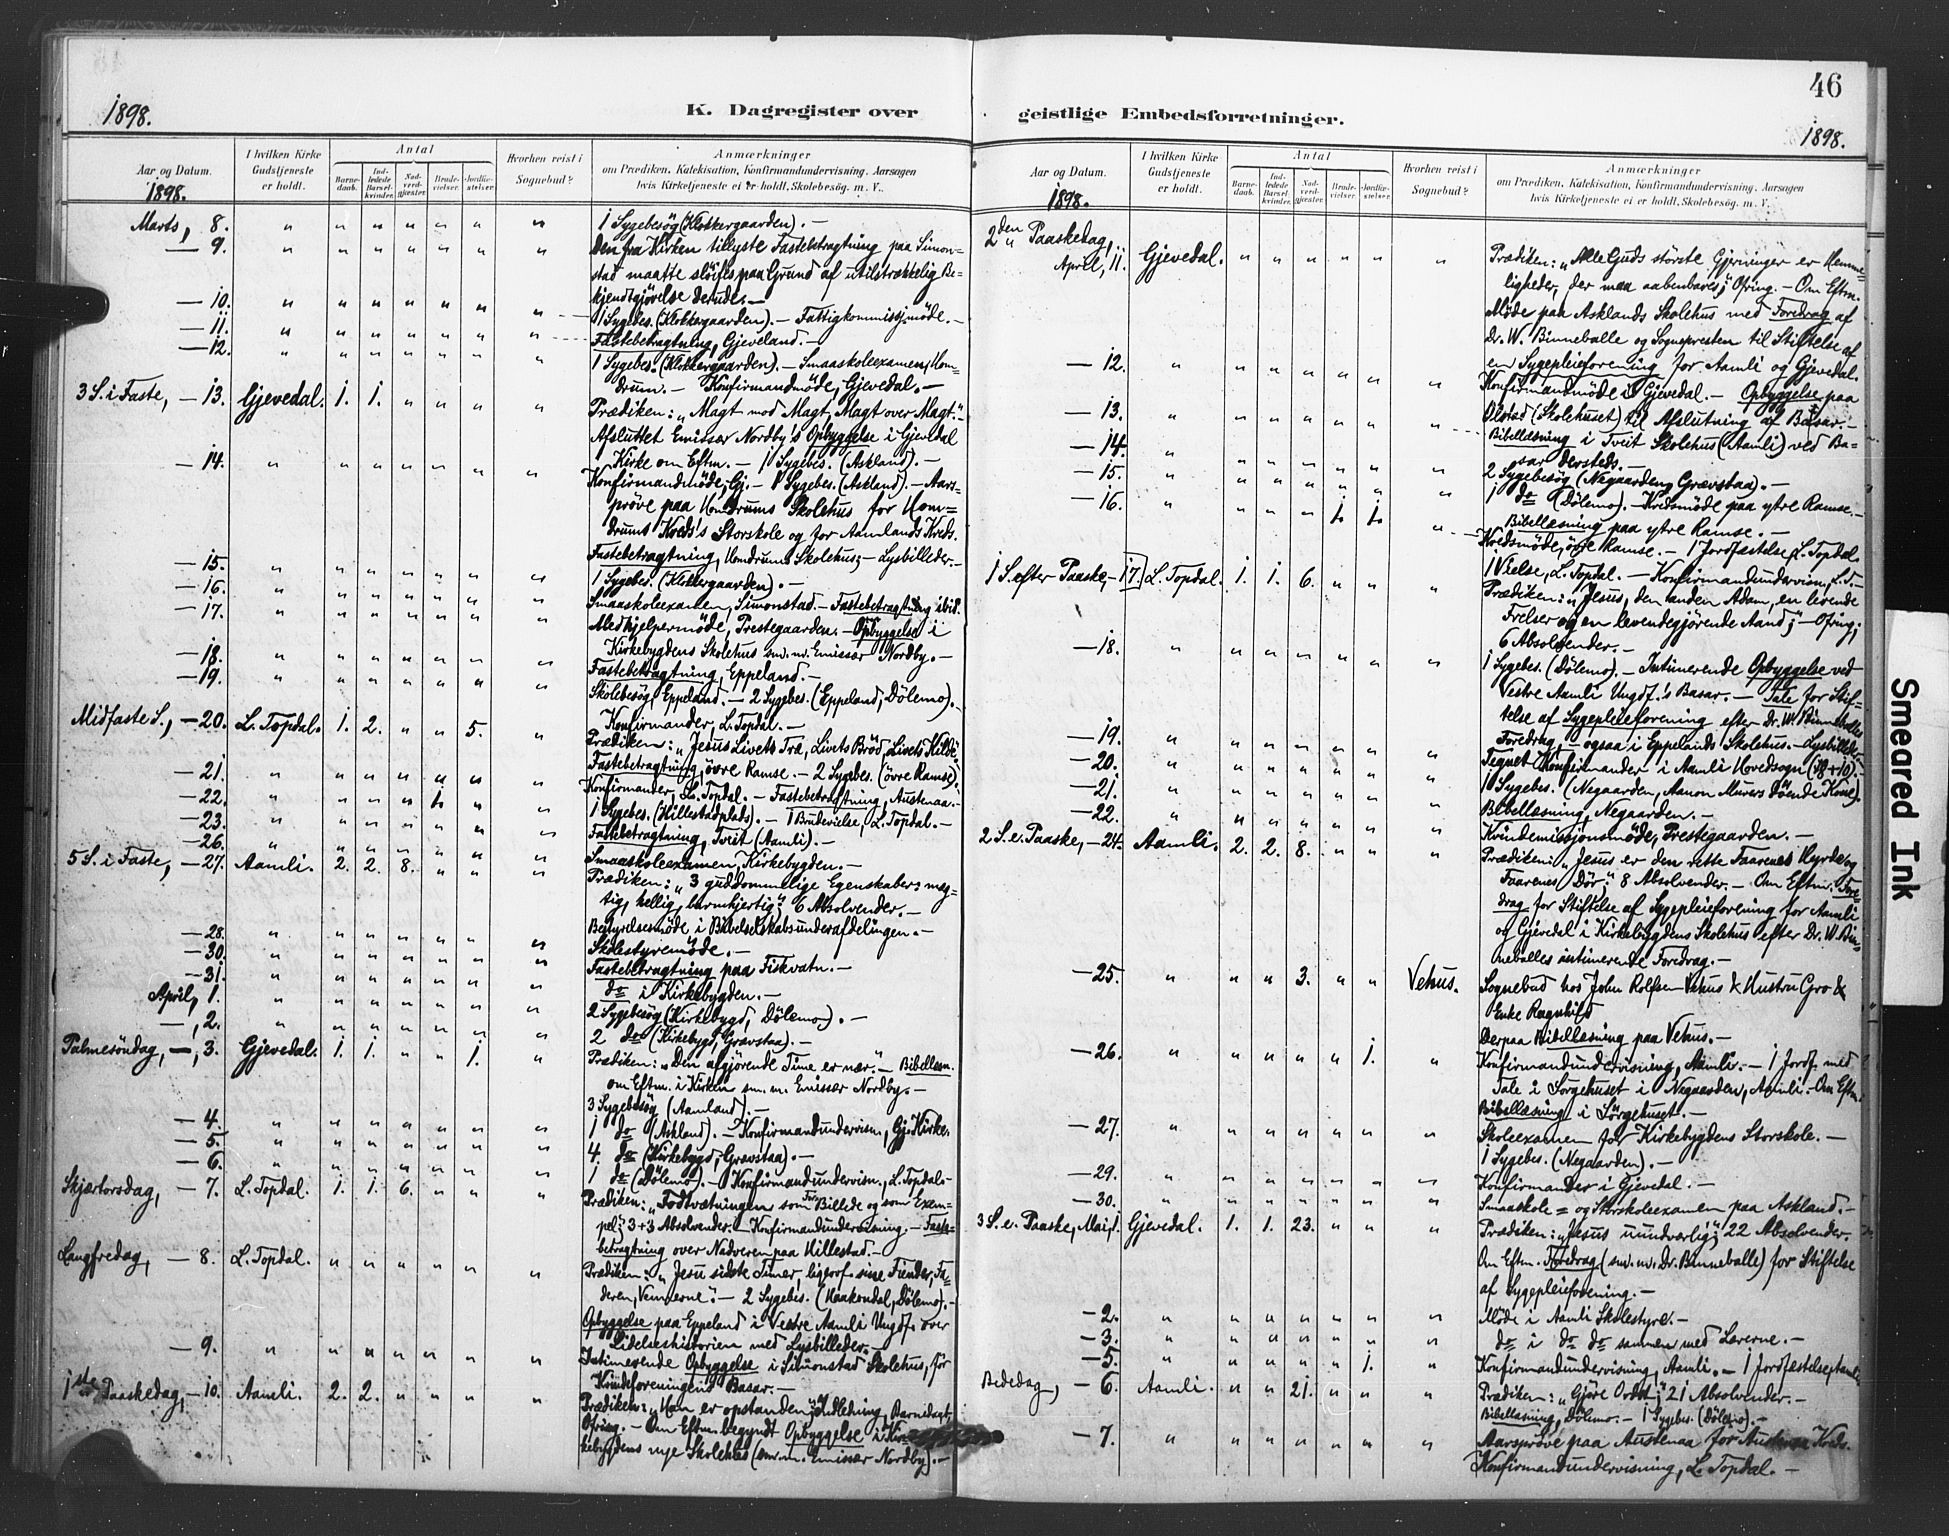 46
1898.
K. Dagregister over geistlige Embedsforretninger.
1898.
Aar og Datum.
I hvilken Kirke Gudstjeneste er holdt.
Antal
Barnedaab.
Indledede Barselkvinder.
Nadverdgjester.
Brudevielser.
Jordfæstelser.
Hvorhen reist i Sognebud?
Anmærkninger
om Prædiken, Katekisation, Konfirmandundervisning. Aarsagen
hvis Kirketjeneste ei er holdt. Skolebesøg. m. V.
1898.
Marts, 8. 1 Sygebesög (Klokkergaarden). –
— 9. Den fra Kirken tillyste Fastebetragtning paa Simon=
stad maatte slöifes paa Grund af utilstrækkelig Be=
kjendtgjörelse derude. –
— 10. 1 Sygebes. (Klokkergaarden). – Fattigkommissj.möde. –
— 11. Fastebetragtning, Gjeveland. –
— 12. 1 Sygebes. (Klokkergaarden). – Smaaskoleexamen, Hom=
drum. – Konfirmandmöde, Gjevedal. –
3 S. i Faste, — 13. Gjevedal. 1. 1. Prædiken: „Magt mod Magt, Magt over Magt.“ –
Afsluttet Emissær Nordby's Opbyggelse i Gjevedal
Kirke om Eftm. – 1 Sygebes. (Askland). –
— 14. Konfirmandmöde, Gj. – 1 Sygebes. (Askland). – Aars=
pröve paa Homdrums Skolehus for Hom=
drums Kreds's Storskole og for Aamlands Kreds.
Fastebetragtning, Homdrums Skolehus; – Lysbilleder. –
— 15. 1 Sygebes. (Klokkergaarden). –
— 16. Smaaskoleexamen, Simonstad. – Fastebetragtning ibid.
— 17. Medhjelpermöde, Prestegaarden. – Opbyggelse i
Kirkebygdens Skolehus sm. m. Emissær Nordby. –
— 18. Fastebetragtning, Eppeland. –
— 19. Skolebesög, Eppeland. – 2 Sygebes. (Eppeland, Dölemo). –
Konfirmander, L. Topdal. –
Midfaste S., — 20. L. Topdal. 1. 2. 5. Prædiken: „Jesus Livets Træ, Livets Bröd, Livets Kilde“.
Fastebetragtning, övre Ramse. – 2 Sygebes. (övre Ramse).
— 21. Konfirmander, L. Topdal. – Fastebetragtning, Austenaa. –
— 22. 1. 1 Sygebes. (Hillestadplads). – 1 Brudevielse, L. Topdal. –
— 23. Fastebetragtning, Tveit (Aamli). –
— 26. Smaaskoleexamen, Kirkebygden. –
5 S. i Faste, — 27. Aamli. 2. 2. 8. Prædiken: „3 guddommelige Egenskaber: mæg=
tig, hellig, barmhjertig“. 6 Absolvender. –
— 28. Bestyrelsesmöde i Bibelselskabsunderafdelingen. –
— 30. Skolestyremöde. –
— 31. Fastebetragtning paa Fiskvatn. –
April, 1. do i Kirkebygden. –
—, 2. 2 Sygebesög (Kirkebygd, Dölemo). –
2 do (Kirkebygd, Grævstaa). –
Palmesöndag, —, 3. Gjevedal. 1. 1. 1. Prædiken: „Den afgjörende Time er nær“. – Bibellæsn.
om Eftm. i Kirken sm. m. Emissær Nordby. –
3 Sygebesög (Aamland). –
— 4. 1 do (Askland). – Konfirmandundervisn., Gj. Kirke.
— 5. 4 do (Kirkebygd, Grævstaa). –
— 6. 1 do (Dölemo). – Konfirmandundervisn., L. Topdal. –
Skjærtorsdag, — 7. L. Topdal. 1. 1. 6. Prædiken: „Fodtvætningen som Billede og som Exem=
pel“. 3+3 Absolvender. – Konfirmandundervisning. – Faste=
betragtning over Nadveren paa Hillestad. –
Langfredag, — 8. L. Topdal. Prædiken: „Jesu sidste Timer, ligeorf. sine Fiender, Fa=
deren, Vennerne“. – 2 Sygebes. (Haakondal, Dölemo). –
Opbyggelse paa Eppeland i Vestre Aamli Ungdf. over
Lidelseshistorien med Lysbilleder. –
— 9. Intimerende Opbyggelse i Simonstad Skolehus, for
Kvindeforeningens Basar. –
1ste Paaskedag, — 10. Aamli. 2. 2. Prædiken: „Han er opstanden“; Indledning, Barnedaab,
Ofring. – Om Eftm. begyndt Opbyggelse i Kir=
kebygdens nye Skolehus (sm. m. Emissær Nordby). –
1898.
Aar og Datum.
I hvilken Kirke Gudstjeneste er holdt.
Antal
Barnedaab.
Indledede Barselkvinder.
Nadverdgjester.
Brudevielser.
Jordfæstelser.
Hvorhen reist i Sognebud?
Anmærkninger
om Prædiken, Katekisation, Konfirmandundervisning. Aarsagen
hvis Kirketjeneste ei er holdt. Skolebesøg. m. V.
1898.
2den Paaskedag, April, 11. Gjevedal. Prædiken: „Alle Guds störste Gjerninger er Hemme=
ligheder, der maa aabenbares“; Ofring. – Om Eftm.
Möde paa Asklands Skolehus med Foredrag af
Dr. W. Binneballe og Sognepresten til Stiftelse af
en Sygepleieforening for Aamli og Gjevedal.
— 12. Konfirmandmöde i Gjevedal. – Opbyggelse paa
Ölstad (Skolehuset) til Afslutning af Basar. –
— 13. Bibellæsning i Tveit Skolehus (Aamli) ved Ba=
sar dersteds. –
— 14. 2 Sygebesög (Negaarden, Grævstaa). –
— 15. 1 do (Dölemo). – Kredsmöde paa ytre Ramse. –
Bibellæsning paa ytre Ramse. –
— 16. 1. 1. Kredsmöde, övre Ramse. – 1 Jordfæstelse, L. Topdal.
1 Vielse, L. Topdal. – Konfirmandundervisn., L. T. –
1 S. efter Paaske, — 17. L. Topdal. 1. 1. 6. Prædiken: „Jesus, den anden Adam, en levende
Frelser og en levendegjörende Aand“; – Ofring;
6 Absolvender. –
— 18. 1 Sygebes. (Dölemo). – Intimerende Opbyggelse ved
Vestre Aamli Ungdf.'s Basar. – Tale for Stif=
telse af Sygepleieforening efter Dr. W. Binneballes
Foredrag, – ogsaa i Eppelands Skolehus. – Lysbilleder. –
— 19. Tegnet Konfirmander i Aamli Hovedsogn
— 20. 1 Sygebes. (Negaarden, Aanon Murers döende Kone).
— 21. Bibellæsning, Negaarden. –
— 22. Kvindemissionsmöde, Prestegaarden. –
2 S. e. Paaske, — 24. Aamli. 2. 2. 8. Prædiken: „Jesus er den rette Faarenes Hyrde og
Faarenes Dör“. 8 Absolvender. – Om Eftm. Fore=
drag for Stiftelse af Sygepleieforening for Aamli
og Gjevedal i Kirkebygdens Skolehus efter Dr. W. Bin=
neballes intimerende Foredrag. –
— 25. 3. Vehus. Sognebud hos John Rolfsen Vehus & Hustru Gro &
Enke Ragnhild
Derpaa Bibellæsning paa Vehus. –
— 26. 1. Konfirmandundervisning, Aamli. – 1 Jordf. med
Tale i Sörgehuset i Negaarden, Aamli. – Om Eftm.
Bibellæsning i Sörgehuset. –
— 27. Skoleexamen for Kirkebygdens Storskole. –
1 Sygebes. (Negaarden). –
— 29. Konfirmander i Gjevedal. –
— 30. Smaaskole= og Storskoleexamen paa Askland. –
3 S. e. Paaske, Mai, 1. Gjevedal. 1. 1. 23. Prædiken: „Jesus uundværlig“; 22 Absolvender.
Om Eftm. Foredrag (sm. m. Dr. Binneballe) for Stiftelse
af Sygepleieforening. –
— 2. Möde i Aamli Skolestyre. –
— 3. do i do do sammen med Lærerne. –
— 5. 1. Konfirmandundervisning, Aamli. – 1 Jordfæstelse, Aamli.
Bededag, — 6. Aamli. 21. Prædiken: „Gjöre Ordet“; 21 Absolvender. –
Bibellæsning, Dölemo. – 1 Sygebes. (Dölemo). –
— 7. Aarspröve paa Austenaa for Austenaa Kreds.
Konfirmandundervisning, L. Topdal. –
Smeared Ink